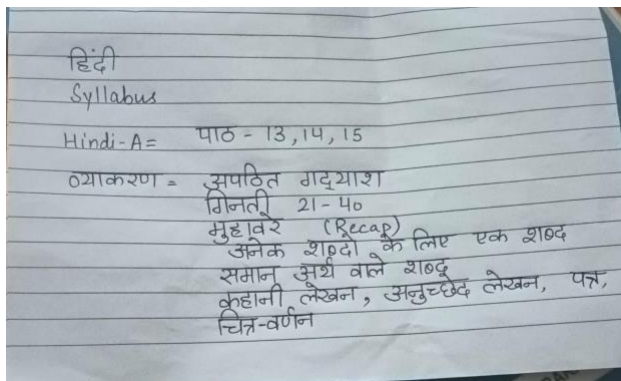 हिंदी
Syllabus
Hindi-A= पाठ - 13,14,15
व्याकरण = अपठित गद्याश
गिनती 21-40
मुहावरे (Recap)
अनेक शब्दो के लिए एक शब्द
समान अर्थ वाले शब्द
कहानी लेखन, अनुच्छेद लेखन, पत्र,
चित्र-वर्णन